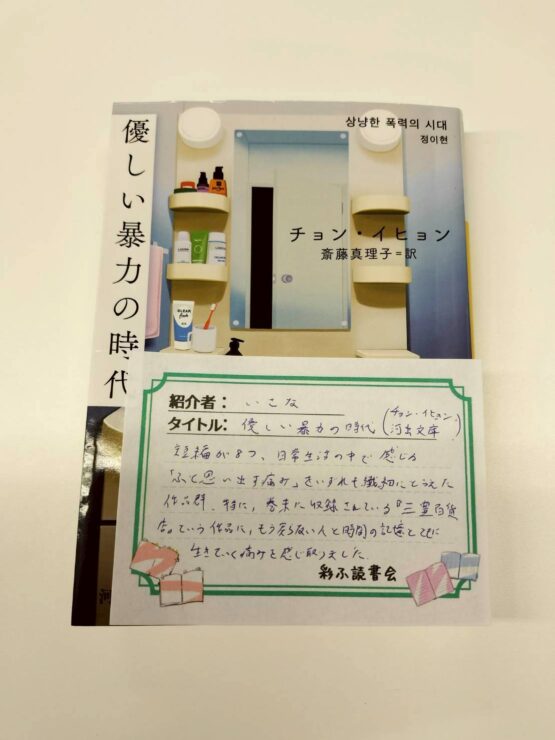 優しい暴力の時代
상냥한 폭력의 시대
정이현
チョン・イヒョン
斎藤真理子=訳
CLEAR
紹介者: いさな
タイトル: 優しい暴力の時代 (チョン・イヒョン、河出文庫)
短編が8つ、日常生活の中で感じる
「ふと思い出す痛み」をいずれも繊細にとらえた
作品群。特に、巻末に収録されている『三豊百貨
店』という作品に、もう戻らない人と時間の記憶とともに
生きていく痛みを感じ取りました。
彩ふ読書会
河